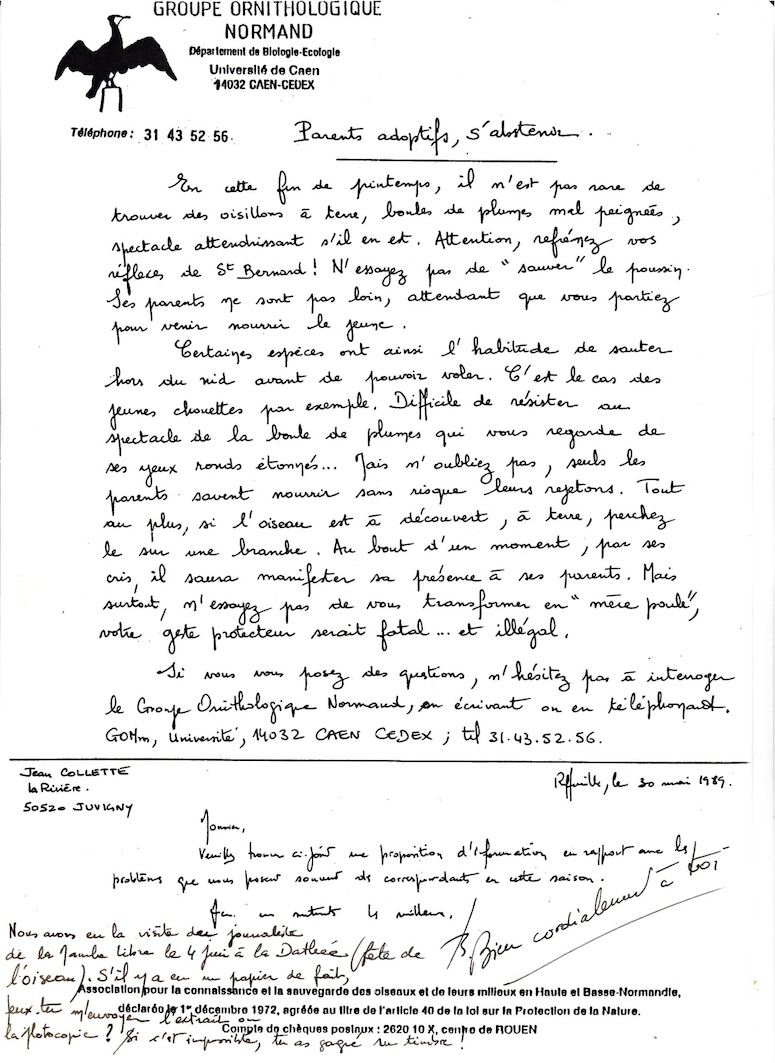 GROUPE ORNITHOLOGIQUE
NORMAND
Département de Biologie-Ecologie
Université de Caen
14032 CAEN-CEDEX
Téléphone : 31 43 52 56.
Parents adoptifs, s'abstenir.
En cette fin de printemps, il n'est pas rare de
trouver des oisillons à terre, boules de plumes mal peignées,
spectacle attendrissant s'il en est. Attention, refrénez vos
réflexes de St Bernard ! N'essayez pas de "sauver" le poussin.
Ses parents ne sont pas loin, attendant que vous partiez
pour venir nourrir le jeune.
Certaines espèces ont ainsi l'habitude de sauter
hors du nid avant de pouvoir voler. C'est le cas des
jeunes chouettes par exemple. Difficile de résister au
spectacle de la boule de plumes qui vous regarde de
ses yeux ronds étonnés... Mais n'oubliez pas, seuls les
parents savent nourrir sans risque leurs rejetons. Tout
au plus, si l'oiseau est à découvert, à terre, perchez
le sur une branche. Au bout d'un moment, par ses
cris, il saura manifester sa présence à ses parents. Mais
surtout, n'essayez pas de vous transformer en "mère poule",
votre geste protecteur serait fatal... et illégal.
Si vous vous posez des questions, n'hésitez pas à interroger
le Groupe Ornithologique Normand, en écrivant ou en téléphonant.
GONm, Université, 14032 CAEN CEDEX ; tél 31.43.52.56.
Jean COLLETTE
la Rivière.
50520 JUVIGNY
Reffuveille, le 30 mai 1989.
Monsieur,
Veuillez trouver ci-joint une proposition d'information en rapport avec les
problèmes que nous posent souvent des correspondants en cette saison.
Bien cordialement à toi
Nous avons eu la visite des journaliste
de la Manche Libre le 4 juin à la Dathée (fête de
l'oiseau). S'il y a eu un papier de fait,
peux-tu m'envoyer l'extrait ou
la photocopie ? Si c'est impossible, tu as gagné un timbre !
Association pour la connaissance et la sauvegarde des oiseaux et de leurs milieux en Haute et Basse-Normandie,
déclarée le 1er décembre 1972, agréée au titre de l'article 40 de la loi sur la Protection de la Nature.
Compte de chèques postaux : 2620 10 X, centre de ROUEN